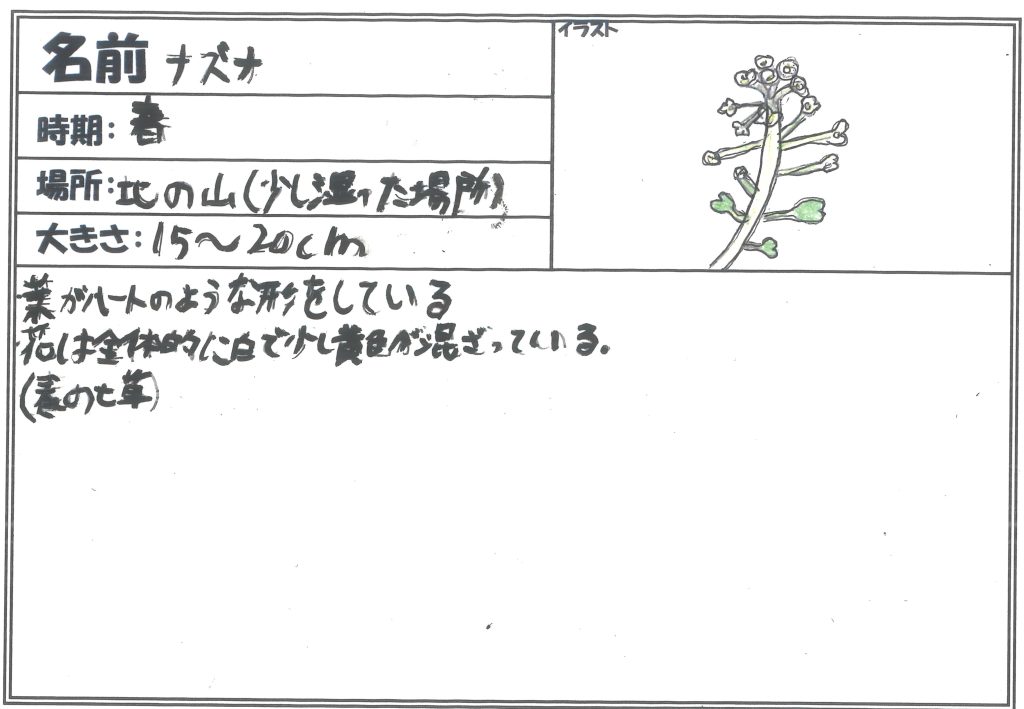 名前 ナズナ
イラスト
時期：春
場所：北の山(少し湿った場所)
大きさ：15～20cm
葉がハートのような形をしている
花は全体的に白で少し黄色が混ざっている。
(春の七草)